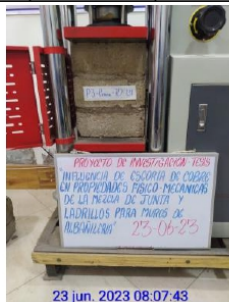 PROYECTO DE INVESTIGACION - TESIS
"INFLUENCIA DE ESCORIA DE COBRE
EN PROPIEDADES FISICO-MECANICAS
DE LA MEZCLA DE JUNTA Y
LADRILLOS PARA MUROS DE
ALBAÑILERIA" 23-06-23
23 jun. 2023 08:07:43